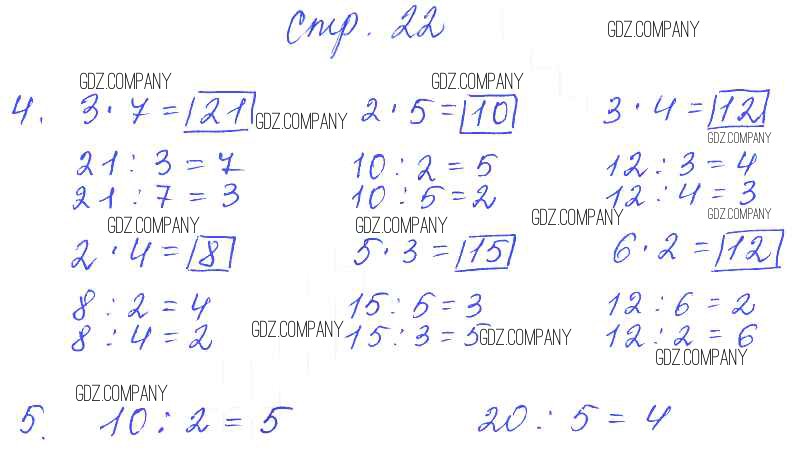 Стр. 22
GDZ.COMPANY
GDZ.COMPANY GDZ.COMPANY
4. 3 · 7 = 21 GDZ.COMPANY 2 · 5 = 10 3 · 4 = 12
GDZ.COMPANY
21 : 3 = 7 10 : 2 = 5 12 : 3 = 4
21 : 7 = 3 10 : 5 = 2 12 : 4 = 3
GDZ.COMPANY GDZ.COMPANY GDZ.COMPANY GDZ.COMPANY
2 · 4 = 8 5 · 3 = 15 6 · 2 = 12
8 : 2 = 4 15 : 5 = 3 12 : 6 = 2
8 : 4 = 2 GDZ.COMPANY 15 : 3 = 5 GDZ.COMPANY 12 : 2 = 6
GDZ.COMPANY
GDZ.COMPANY
5. 10 : 2 = 5 20 : 5 = 4